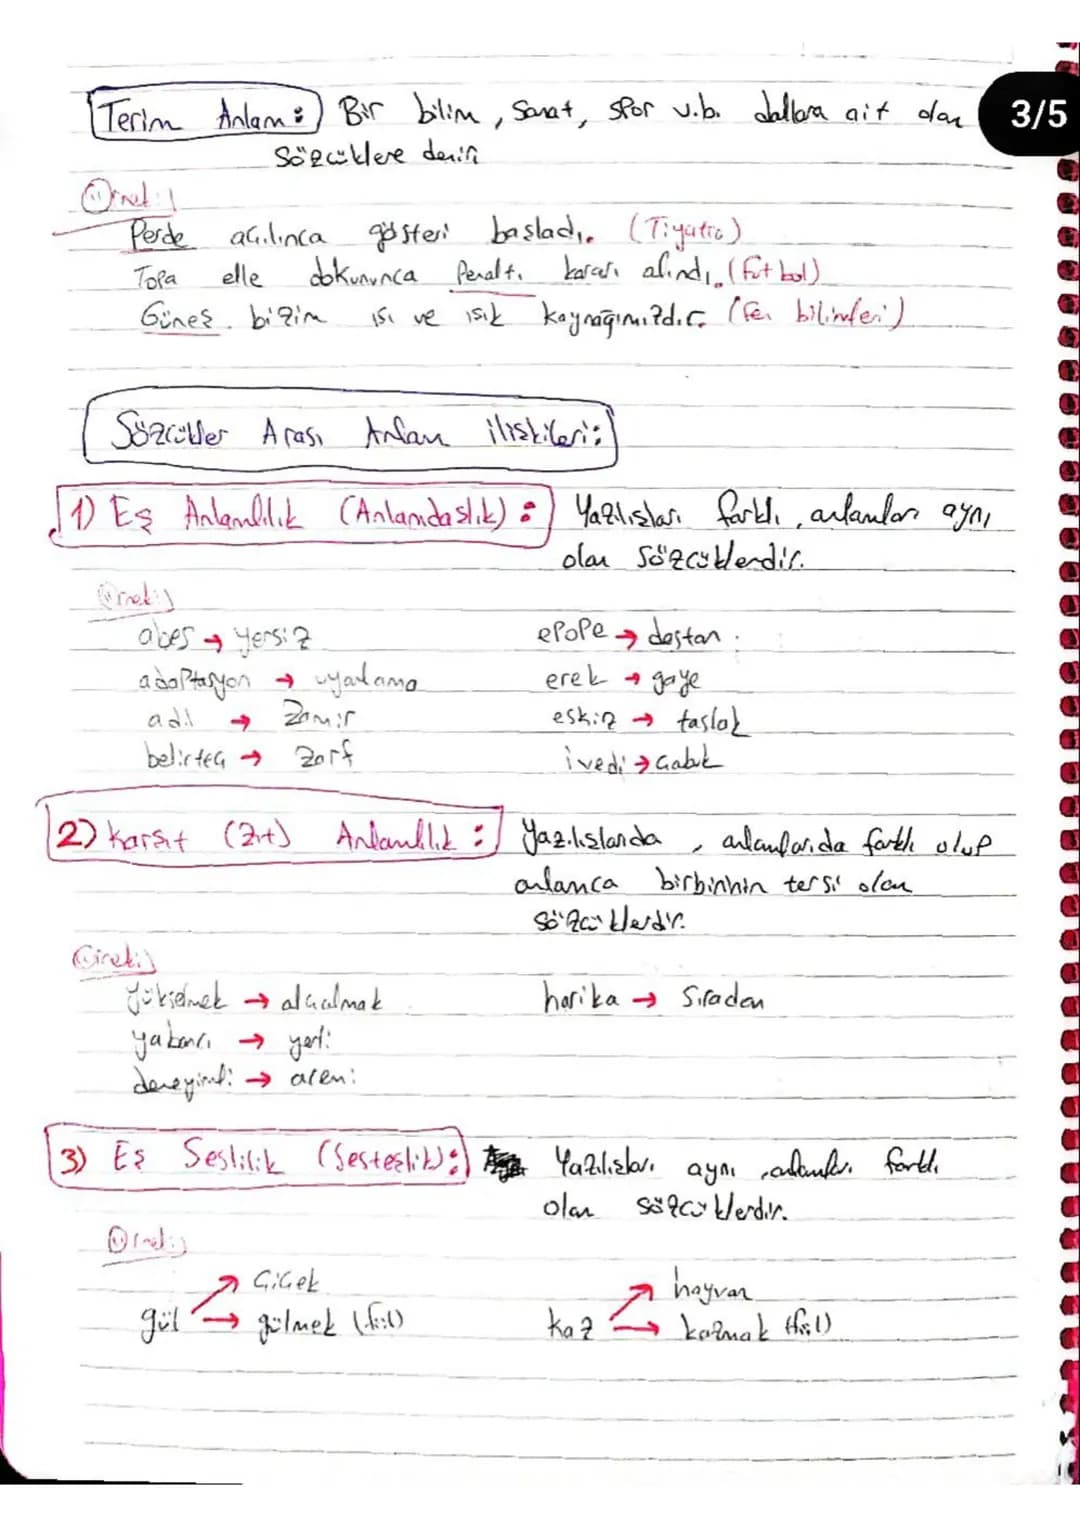 Terim Anlam: Bir bilim, Sanat, spor v.b. dallara ait olan
3/5
Sözcüklere denir
Örnek:
Perde açılınca gösteri başladı. (Tiyatro)
Topa elle dokununca Penaltı kararı alındı. (futbol)
Güneş bizim ısı ve ışık kaynağımızdır. (fen bilimleri)
Sözcükler Arası Anlam ilişkileri:
1) Eş Anlamlılık (Anlamdaşlık): Yazılışları farklı, anlamları aynı
olan Sözcüklerdir.
Örnek:
abes → yersiz epope → destan
adaptasyon → uyarlama erek → gaye
adıl → Zamir eskiz → taslak
belirteç → Zarf ivedi → Çabuk
2) Karşıt (Zıt) Anlamlılık: Yazılışlarıda, anlamlarıda farklı olup
anlamca birbirinin tersi olan
sözcüklerdir.
Örnek:
yükselmek → alçalmak harika → Sıradan
yabancı → yerli
deneyimli → acemi
3) Eş Seslilik (Sesteşlik): Yazılışları aynı, anlamları farklı
olan sözcüklerdir.
Örnek:
Çiçek hayvan
gül → gülmek (fiil) kaz → kazmak (fiil)